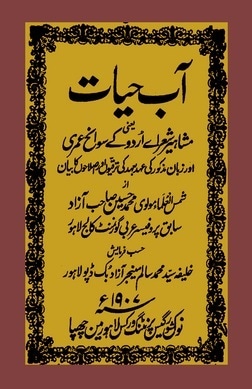 آب حیات
یعنی
مشاہیر شعراے اُردو کے سوانح عمری
اور زبان مذکور کی عہد بعہد کی ترقیوں اور اصلاحوں کا بیان
از
شمس العلما مولوی محمد حسین صاحب آزاد
سابق پروفیسر عربی گورنمنٹ کالج لاہور
حسب فرمایش
خلیفہ سید محمد سالم منیجر آزاد بک ڈپو لاہور
۱۹۰۷ء
نولکشور گیس پرنٹنگ ورکس لاہور میں چھپا